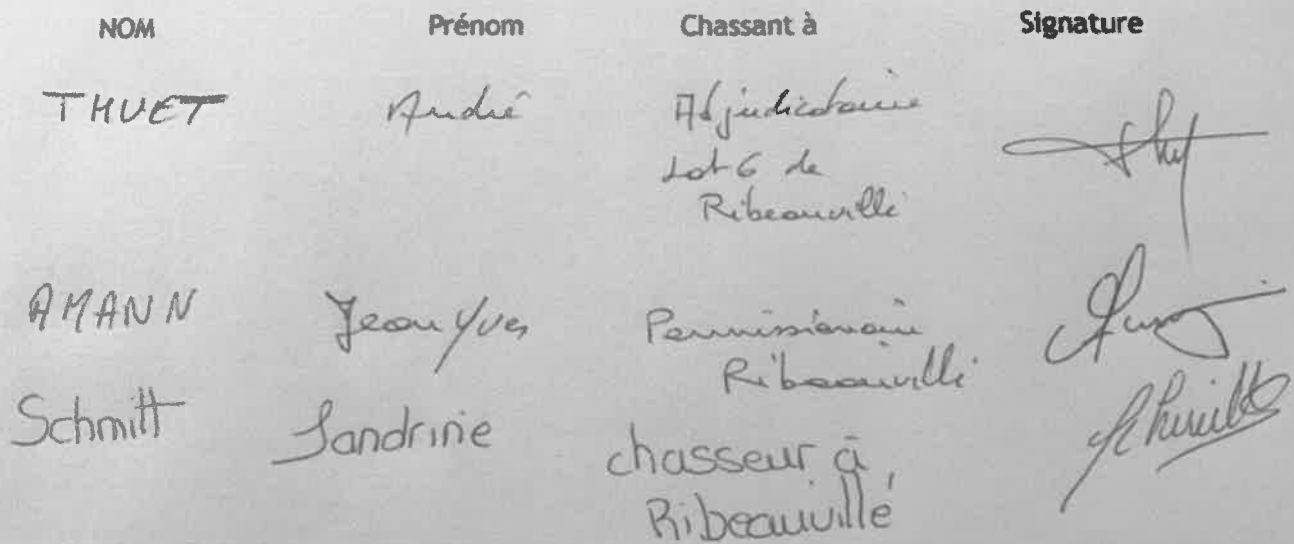 NOM Prénom Chassant à Signature
THUET André Adjudicataire
Lot 6 de
Ribeauvillé
AMANN Jean Yves Permissionnaire
Ribeauvillé
Schmitt Sandrine chasseur à
Ribeauvillé